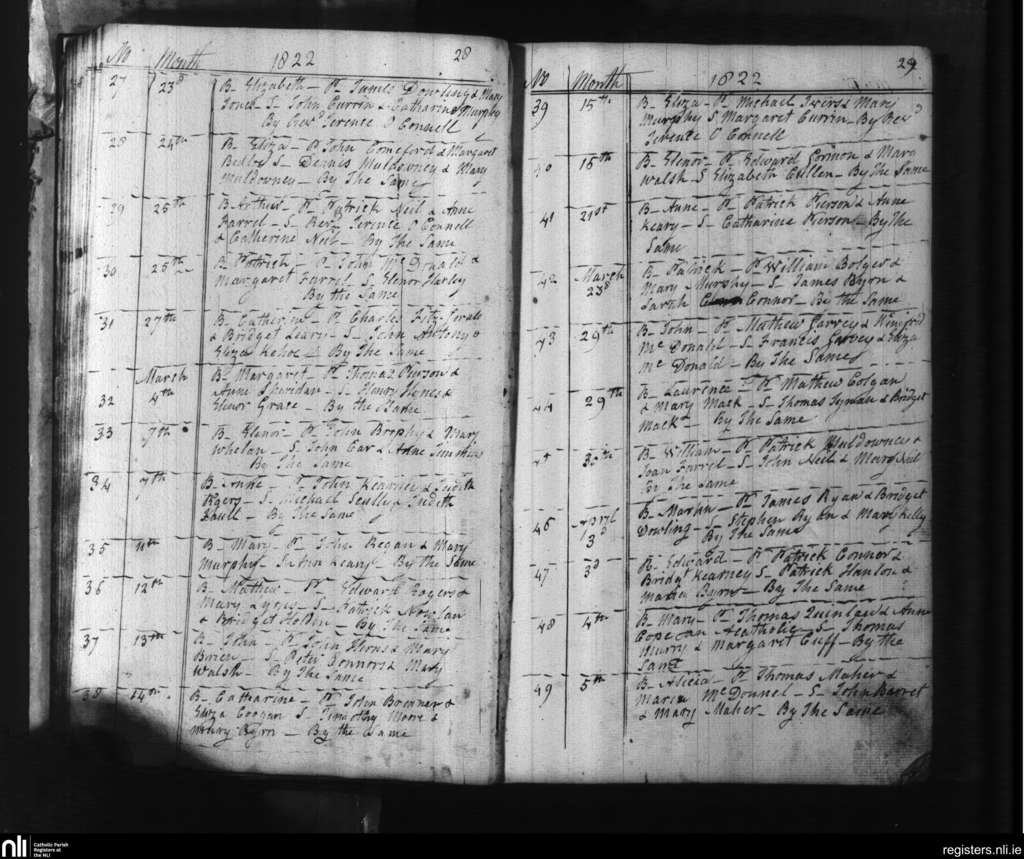 No Month 1822 28
27 23d B- Elizabeth - P. James Dowling & Mary
Jones S- John Currin & Catharine Murphy
By Revd Terence O Connell
28 24th B- Eliza - P. John Comeford & Margaret
S- Dennis Muldowney & Mary
Muldowney - By The Same
29 25th B- Arthur - P. Patrick Neil & Anne
Farrel - S- Revd Terence O Connell
& Catherine Neil - By The Same
30 26th B- Patrick - P. John Mc Donald &
Margaret Farrel - S- Elenor Hurley
By the Same
31 27th B- Catherine P. Charles Fitz Gerald
& Bridget Leary - S- John Antony &
Eliza Kehoe - By The Same
March
32 4th B- Margaret - P. Thomas Pierson &
Anne Sheridan - S- Henry Hynes &
Elenor Grace - By the Same
33 7th B- Elenor - P. John Brophy & Mary
Whelan - S- John Ear & Anne
By The Same
34 7th B- Anne - P. John Kearnce & Judith
Rogers - S- Michael Scully & Judith
- By The Same
35 11th B- Mary - P. John Regan & Mary
Murphy - S- Keary - By the Same
36 12th B- Mathew - P. Edward Rogers &
Mary Lyons - S- Patrick Nowlan
& Bridget Holden - By The Same
37 13th B- John - P. John & Mary
Brien - S- Peter Connors & Mary
Walsh - By The Same
38 14th B- Catharine - P. John Brenner &
Eliza Coogan S- Timothy Moore &
Mary Byrn - By the Same
No Month 1822 29
39 15th B- Eliza - P. Michael & Mary
Murphy S- Margaret Currin - By Revd
Terence O Connell
40 18th B- Elenor - P. Edward Gormon & Mary
Walsh - S- Elizabeth Cullen - By The Same
41 21st B- Anne - P. Patrick Pierson & Anne
Keary - S- Catharine Pierson - By The
Same
42 March 23d B- Patrick - P. William Bolger &
Mary Murphy - S- James Byron &
Sarah Connor - By the Same
43 29th B- John - P. Mathew Garvey & Winifrid
Mc Donald - S- Francis Garvey & Eliza
Mc Donald - By The Same
44 29th B- Laurence - P. Mathew Colgan
& Mary Mack - S- Thomas Tynan & Bridget
Mack - By The Same
30th B- William - P. Patrick Muldowney &
Joan Farrel - S- John Neil & Mary Neil
By The Same
46 April 3d B- Martin - P. James Ryan & Bridget
Dowling - S- Stephen Ryan & Mary Kelly
By The Same
47 3d B- Edward - P. Patrick Connors &
Bridgt Kearney S- Patrick Hanlon &
Maria Byrn - By The Same
48 4th B- Mary - P. Thomas Quinlan & Anne
Cope an Acatholic - S- Thomas
Murry & Margaret Cuff - By the
Same
49 5th B- Alicia - P. Thomas Maher &
Maria McDonnel - S- John Barret
& Mary Maher - By The Same
nli
Catholic Parish
Registers at
the NLI
registers.nli.ie